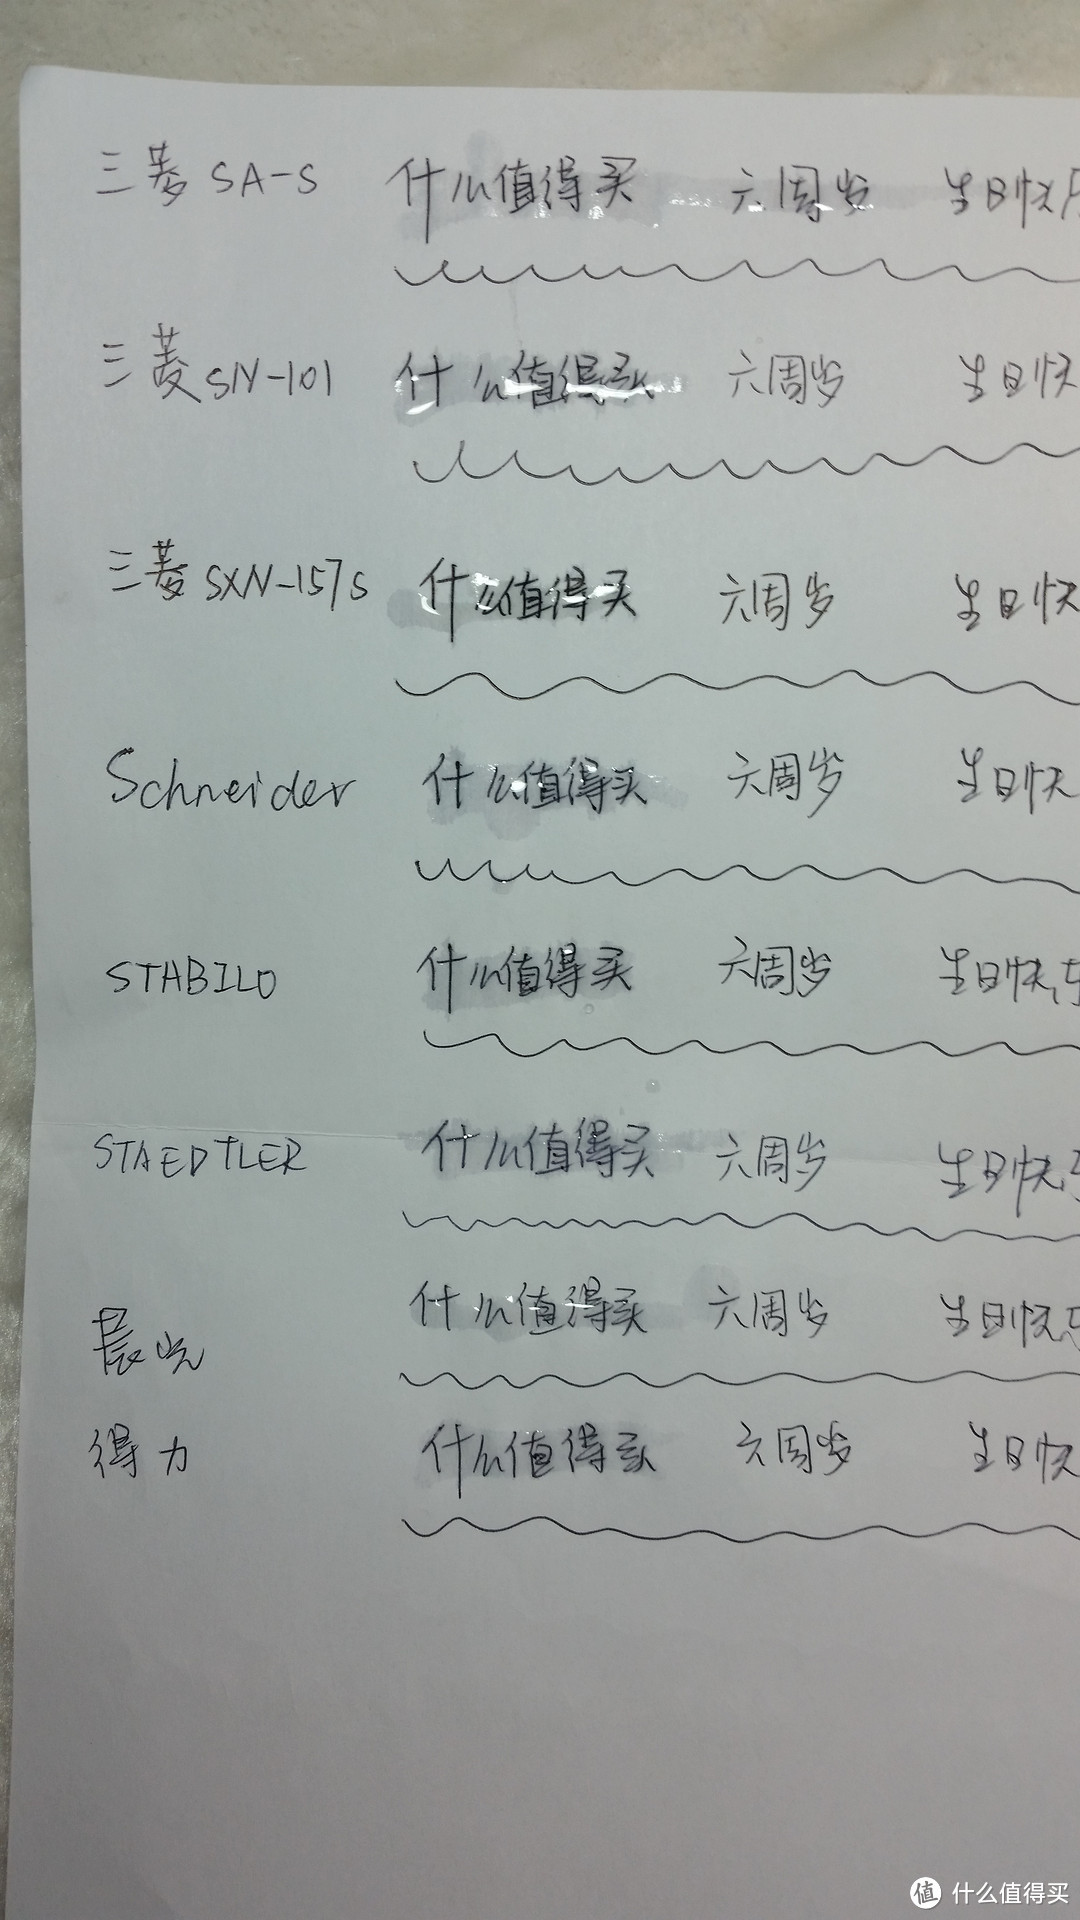 三菱 SA-S 什么值得买 六周岁 生日快乐
三菱 SN-101 什么值得买 六周岁 生日快
三菱 SXN-157S 什么值得买 六周岁 生日快
Schneider 什么值得买 六周岁 生日快
STABILO 什么值得买 六周岁 生日快乐
STAEDTLER 什么值得买 六周岁 生日快乐
晨光 什么值得买 六周岁 生日快乐
得力 什么值得买 六周岁 生日快
值 什么值得买